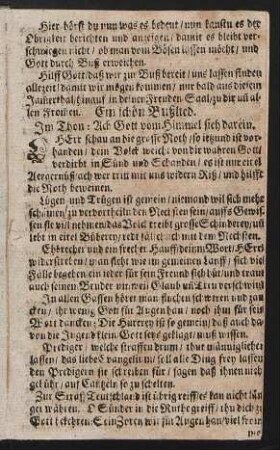 Hier hörst du nun was es bedeut / nun kanstu es der
Obrigkeit berichten und anzeigen / damit es bleibt ver-
schwiegen nicht / ob man vom Bösen lassen möcht / und
Gott durch Buß erweichen.
Hilff Gott daß wir zur Buß bereit / uns lassen finden
allezeit / damit wir mögen kommen / nur bald aus diesem
Jamerthal / hinauf in deinen Freuden-Saal / zu dir un al-
len Frommen. Ein schön Bußlied.
Im Thon: Ach Gott vom Himmel sich darein.
HErr schau an die grosse Noth / so itzund ist vor-
handen / dein Volck weicht von dir wahren Gott /
verdirbt in Sünd und Schanden / es ist nur eitel
Aergernüß / ach wer tritt mit uns widern Riß / und hilfft
die Noth beweinen.
Lügen und Trügen ist gemein / niemand wil sich mehr
schämen / zu vervortheiln den Nechsten sein /
viel nehmen das Beid treibt grosse Schinderey / un
lebt in eitel Büberey / redt fälschlich mit dem Nechsten.
Ehbrecher und
widerstreben / man steht wie im gemeinen Lauff / sich viel
Fälle begeben ein ieder für sein Freund sich hüt / und traun
auch seinem Bruder
In allen Gassen höret man fluchen schweren und zan-
cken / ihr wenig Gott für Augen han / noch ihm für sein
Wort dancken: Die Hurerey ist so gemein / daß auch da-
von die Jugend klein Gott seys geklagt / muß wissen.
Prediger / welche straffen drum /
lassen / das liebe Evangelium / sell alle Ding frey lassen
den Predigern sie schreiben für / sagen daß ihnen nich
geb ühr / auf Cantzeln so zu schelten.
Zur Straf Teutschland ist übrig reiff / es kan nicht län
ger währen. O Sünder in die Ruthe greiff / thu dich zu
Gott bekehren: Sein Zoren wir für Augen han / viel